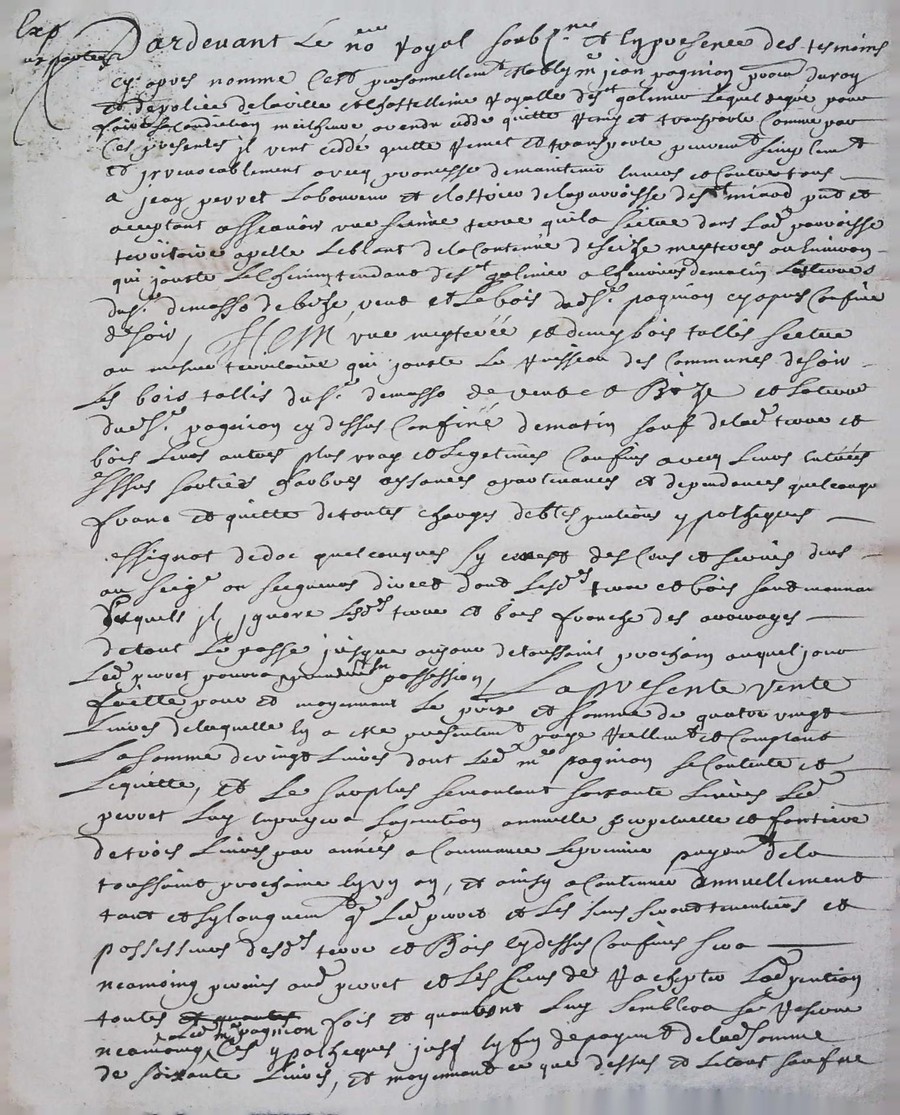 Exp
Pardevant Le no.re Royal soub.ne et En presence des tesmoins
cy apres nomme C'est personnellem.t Estably m.e jean pagnion procur du roy
et de police de la ville et Chastellenie Royalle de s.t galmier Lequel de gré pour
faire sa condiction meilheure a vendu cedde quitte Remis et transporte Comme par
Ces presentes il vent cedde quitte Remet et transporte purem.t simplem.t
et irrevocablement avecq promesse de maintenir Envers et Contre tous
A jean perret Laboureur et de la parroisse de s.t pnt et
acceptant assavoir une sienne terre qu'il a scittue dans Lad. parroisse
territoire apelle Le de la Contenue de seize mesterees ou Environ
qui jouste Le Chemin tendant de s.t galmier a de matin Les terres
dud.s.r demasso de bize, vent et Le bois dud.s.r pagnion cy apres Confine
de soir, ITEM une mesterée et demy bois tallis scittue
au mesme territoire qui jouste Le Ruisseau des Communes de soir
Les bois tallis du s.r demasso de vent et Bize et La terre
dud.s.r pagnion cy dessus Confiné de matin sauf de lad. terre et
bois Leurs autres plus vrays et Legetimes Confins avecq Leurs Entrées
Issues sorties arbres aysances apartenances et dependances quelconque
franc et quitte de toutes charges debtes pentions ypotheques
assignat de doc quelconques sy des Cens et servis deus
au seig.r ou seigneurs direct dont Lesd.s terre et bois sont mouvant
Lesquels il ignore Lesd.s terre et bois franche des arrerages
de tout Le passe jusque au jour de toussaint prochain auquel jour
Led. perret pourra prendre possession, La presente vente
faitte pour et moyennant Le prix et somme de quatre vingt
Livres de laquelle En a esté presentem.t payé Réellem.t et Comptant
La somme de vingt Livres dont Led. m.e pagnion se Contente et
L'equitte, et Le surplus remontant soixante Livres Led.
perret Luy En payera La pention annuelle perpetuelle et fontiere
de trois Livres par années a Commancer Le premier payem. de la
toussaint prochaine En un an, et ainsy a Continuer Annuellement
tant et sy longuem.t q. Led. perret et Les siens seront tenentiers et
possesseurs desd.s terre et Bois cy dessus Confines sera
neamoing permis aud. perret et Les siens de Rachepter Lad. pention
toutes et quantes fois et quant Luy semblera se Reserve
Led. m.e pagnion
neamoing Ces ypotheques jusq. En fin de payem.t de lad. somme
de soixante Livres, et moyennant ce que dessus et Le tout sauf ne